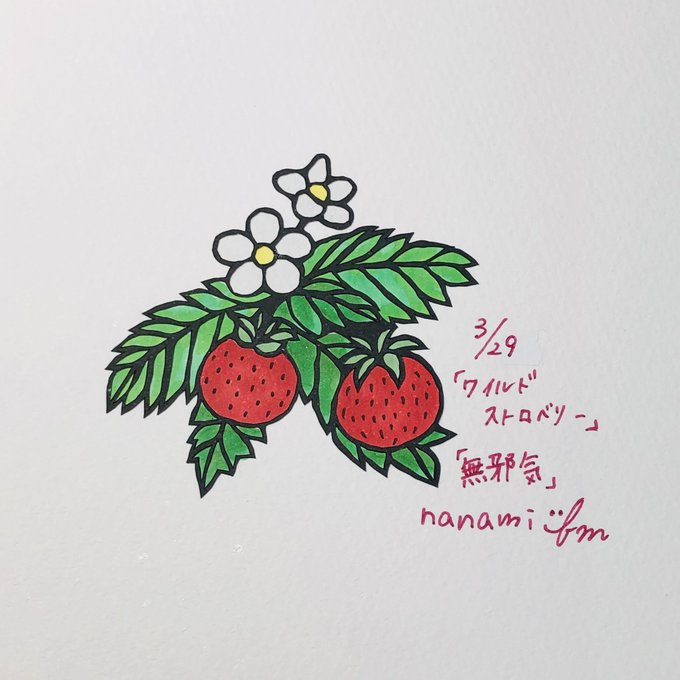 3/29
「ワイルド
ストロベリー」
「無邪気」
nanami